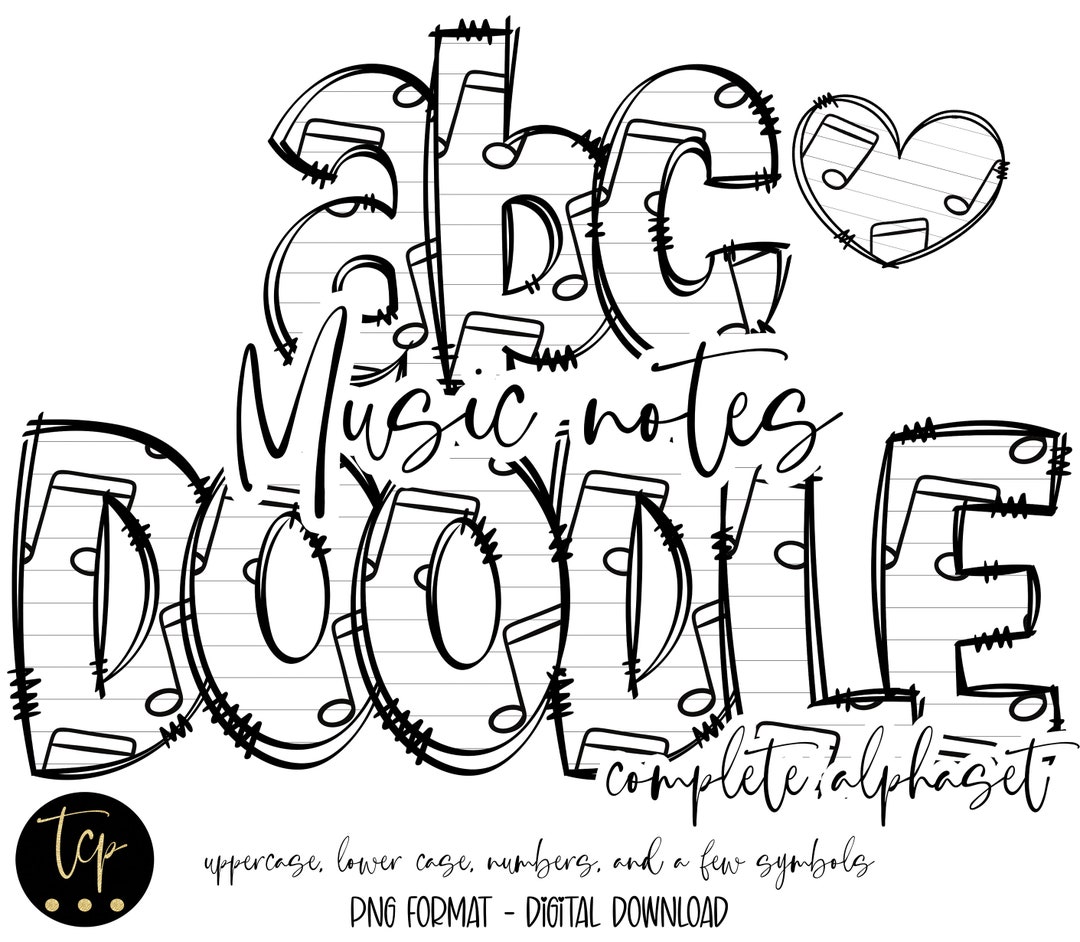 abc
Music notes
DOODLE
complete alphaset
tcp
uppercase, lower case, numbers, and a few symbols
PNG FORMAT - DIGITAL DOWNLOAD